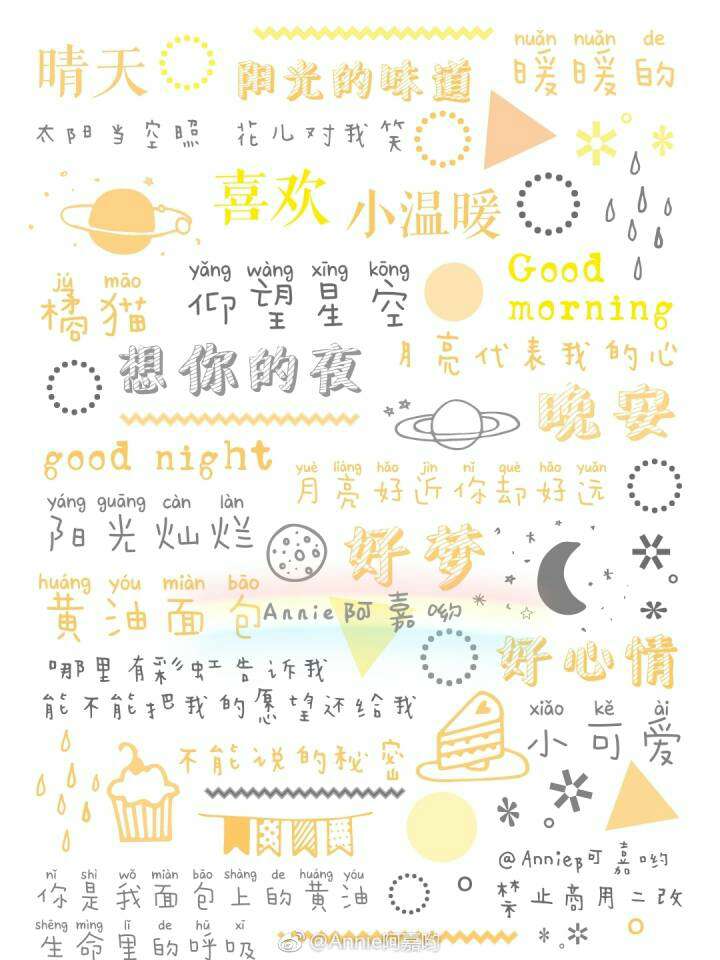 晴天
阳光的味道
nuǎn nuǎn de
暖暖的
太阳当空照 花儿对我笑
喜欢
小温暖
jú māo
橘猫
yǎng wàng xīng kōng
仰望星空
Good
morning
想你的夜
月亮代表我的心
晚安
good night
yuè liáng hǎo jìn nǐ què hǎo yuǎn
月亮好近你却好远
yáng guāng càn làn
阳光灿烂
好梦
huáng yóu miàn bāo
黄油面包
Annie阿嘉哟
好心情
哪里有彩虹告诉我
能不能把我的愿望还给我
xiǎo kě ài
小可爱
不能说的秘密
@Annie阿嘉哟
禁止商用二改
nǐ shì wǒ miàn bāo shàng de huáng yóu
你是我面包上的黄油
shēng mìng lǐ de hū xī
生命里的呼吸
@Annie阿嘉昀